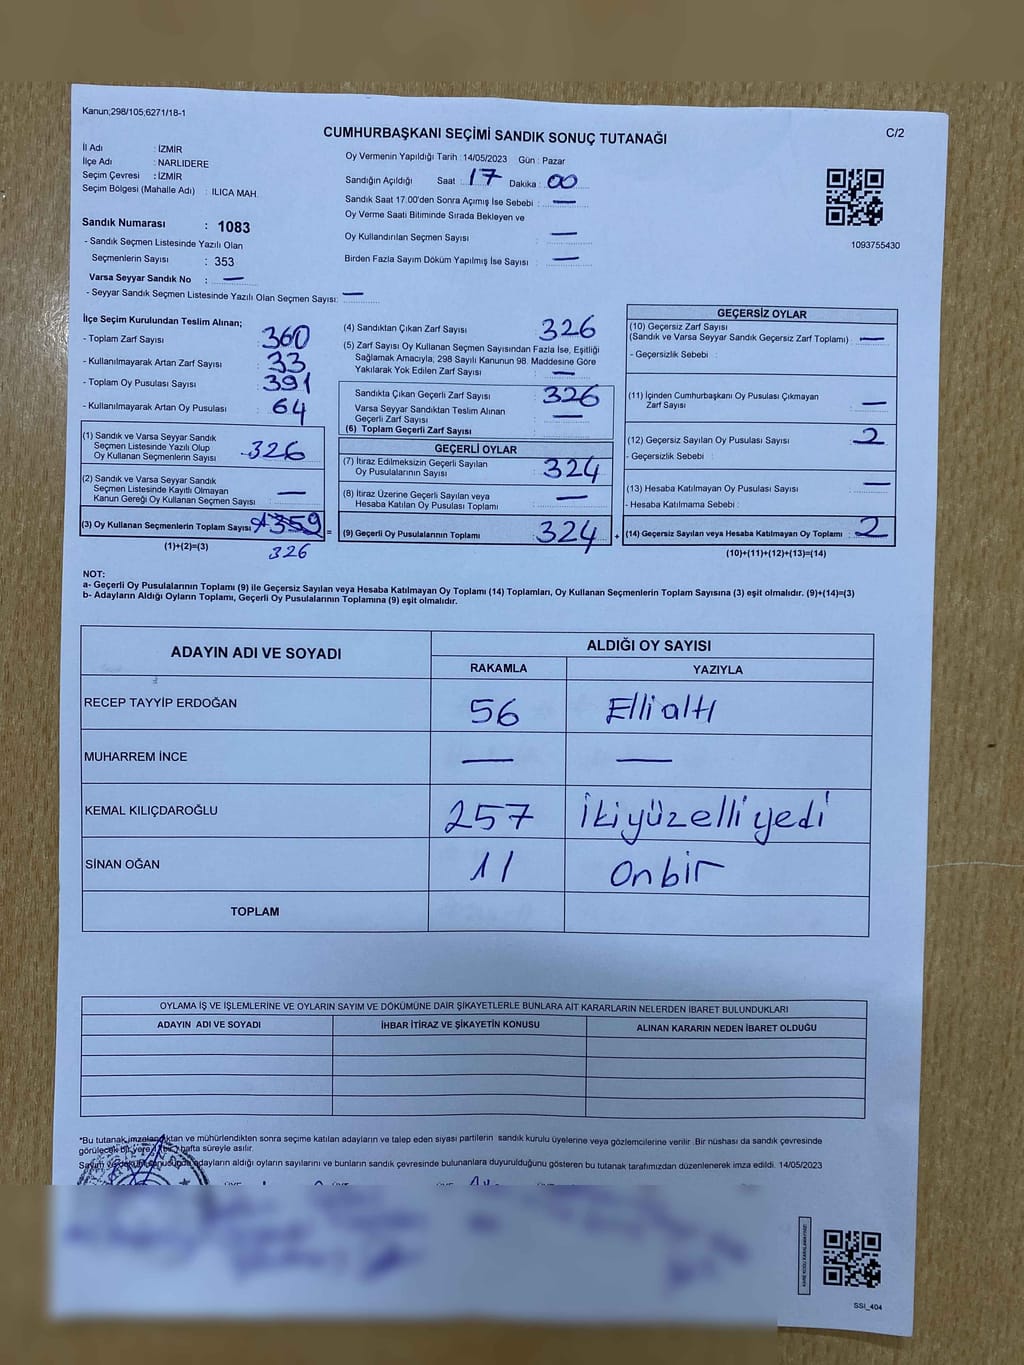 Kanun;298/105;6271/18-1
C/2
CUMHURBAŞKANI SEÇİMİ SANDIK SONUÇ TUTANAĞI
İl Adı : İZMİR
İlçe Adı : NARLIDERE
Seçim Çevresi : İZMİR
Seçim Bölgesi (Mahalle Adı) : ILICA MAH.
Sandık Numarası : 1083
- Sandık Seçmen Listesinde Yazılı Olan
Seçmenlerin Sayısı : 353
Varsa Seyyar Sandık No : —
- Seyyar Sandık Seçmen Listesinde Yazılı Olan Seçmen Sayısı: —
Oy Vermenin Yapıldığı Tarih : 14/05/2023 Gün : Pazar
Sandığın Açıldığı Saat : 17 Dakika : 00
Sandık Saat 17.00'den Sonra Açımış İse Sebebi : —
Oy Verme Saati Bitiminde Sırada Bekleyen ve
Oy Kullandırılan Seçmen Sayısı : —
Birden Fazla Sayım Döküm Yapılmış İse Sayısı : —
1093755430
İlçe Seçim Kurulundan Teslim Alınan;
- Toplam Zarf Sayısı : 360
- Kullanılmayarak Artan Zarf Sayısı : 33
- Toplam Oy Pusulası Sayısı : 391
- Kullanılmayarak Artan Oy Pusulası : 64
(1) Sandık ve Varsa Seyyar Sandık
Seçmen Listesinde Yazılı Olup
Oy Kullanan Seçmenlerin Sayısı : 326
(2) Sandık ve Varsa Seyyar Sandık
Seçmen Listesinde Kayıtlı Olmayan
Kanun Gereği Oy Kullanan Seçmen Sayısı : —
(3) Oy Kullanan Seçmenlerin Toplam Sayısı 359
(1)+(2)=(3) 326
(4) Sandıktan Çıkan Zarf Sayısı : 326
(5) Zarf Sayısı Oy Kullanan Seçmen Sayısından Fazla İse, Eşitliği
Sağlamak Amacıyla, 298 Sayılı Kanunun 98. Maddesine Göre
Yakılarak Yok Edilen Zarf Sayısı : —
Sandıkta Çıkan Geçerli Zarf Sayısı : 326
Varsa Seyyar Sandıktan Teslim Alınan
Geçerli Zarf Sayısı : —
(6) Toplam Geçerli Zarf Sayısı :
GEÇERLİ OYLAR
(7) İtiraz Edilmeksizin Geçerli Sayılan
Oy Pusulalarının Sayısı : 324
(8) İtiraz Üzerine Geçerli Sayılan veya
Hesaba Katılan Oy Pusulası Toplamı : —
= (9) Geçerli Oy Pusulalarının Toplamı : 324
GEÇERSİZ OYLAR
(10) Geçersiz Zarf Sayısı
(Sandık ve Varsa Seyyar Sandık Geçersiz Zarf Toplamı) : —
- Geçersizlik Sebebi :
(11) İçinden Cumhurbaşkanı Oy Pusulası Çıkmayan
Zarf Sayısı : —
(12) Geçersiz Sayılan Oy Pusulası Sayısı : 2
- Geçersizlik Sebebi :
(13) Hesaba Katılmayan Oy Pusulası Sayısı : —
- Hesaba Katılmama Sebebi :
+ (14) Geçersiz Sayılan veya Hesaba Katılmayan Oy Toplamı : 2
(10)+(11)+(12)+(13)=(14)
NOT:
a- Geçerli Oy Pusulalarının Toplamı (9) ile Geçersiz Sayılan veya Hesaba Katılmayan Oy Toplamı (14) Toplamları, Oy Kullanan Seçmenlerin Toplam Sayısına (3) eşit olmalıdır. (9)+(14)=(3)
b- Adayların Aldığı Oyların Toplamı, Geçerli Oy Pusulalarının Toplamına (9) eşit olmalıdır.
ADAYIN ADI VE SOYADI ALDIĞI OY SAYISI
RAKAMLA YAZIYLA
RECEP TAYYİP ERDOĞAN 56 Elli altı
MUHARREM İNCE — —
KEMAL KILIÇDAROĞLU 257 İkiyüzelli yedi
SİNAN OĞAN 11 Onbir
TOPLAM
OYLAMA İŞ VE İŞLEMLERİNE VE OYLARIN SAYIM VE DÖKÜMÜNE DAİR ŞİKAYETLERLE BUNLARA AİT KARARLARIN NELERDEN İBARET BULUNDUKLARI
ADAYIN ADI VE SOYADI İHBAR İTİRAZ VE ŞİKAYETİN KONUSU ALINAN KARARIN NEDEN İBARET OLDUĞU
*Bu tutanak imzalandıktan ve mühürlendikten sonra seçime katılan adayların ve talep eden siyasi partilerin sandık kurulu üyelerine veya gözlemcilerine verilir .Bir nüshası da sandık çevresinde
görülecek bir yere (bir) hafta süreyle asılır.
adayların aldığı oyların sayılarını ve bunların sandık çevresinde bulunanlara duyurulduğunu gösteren bu tutanak tarafımızdan düzenlenerek imza edildi. 14/05/2023
SSİ_404